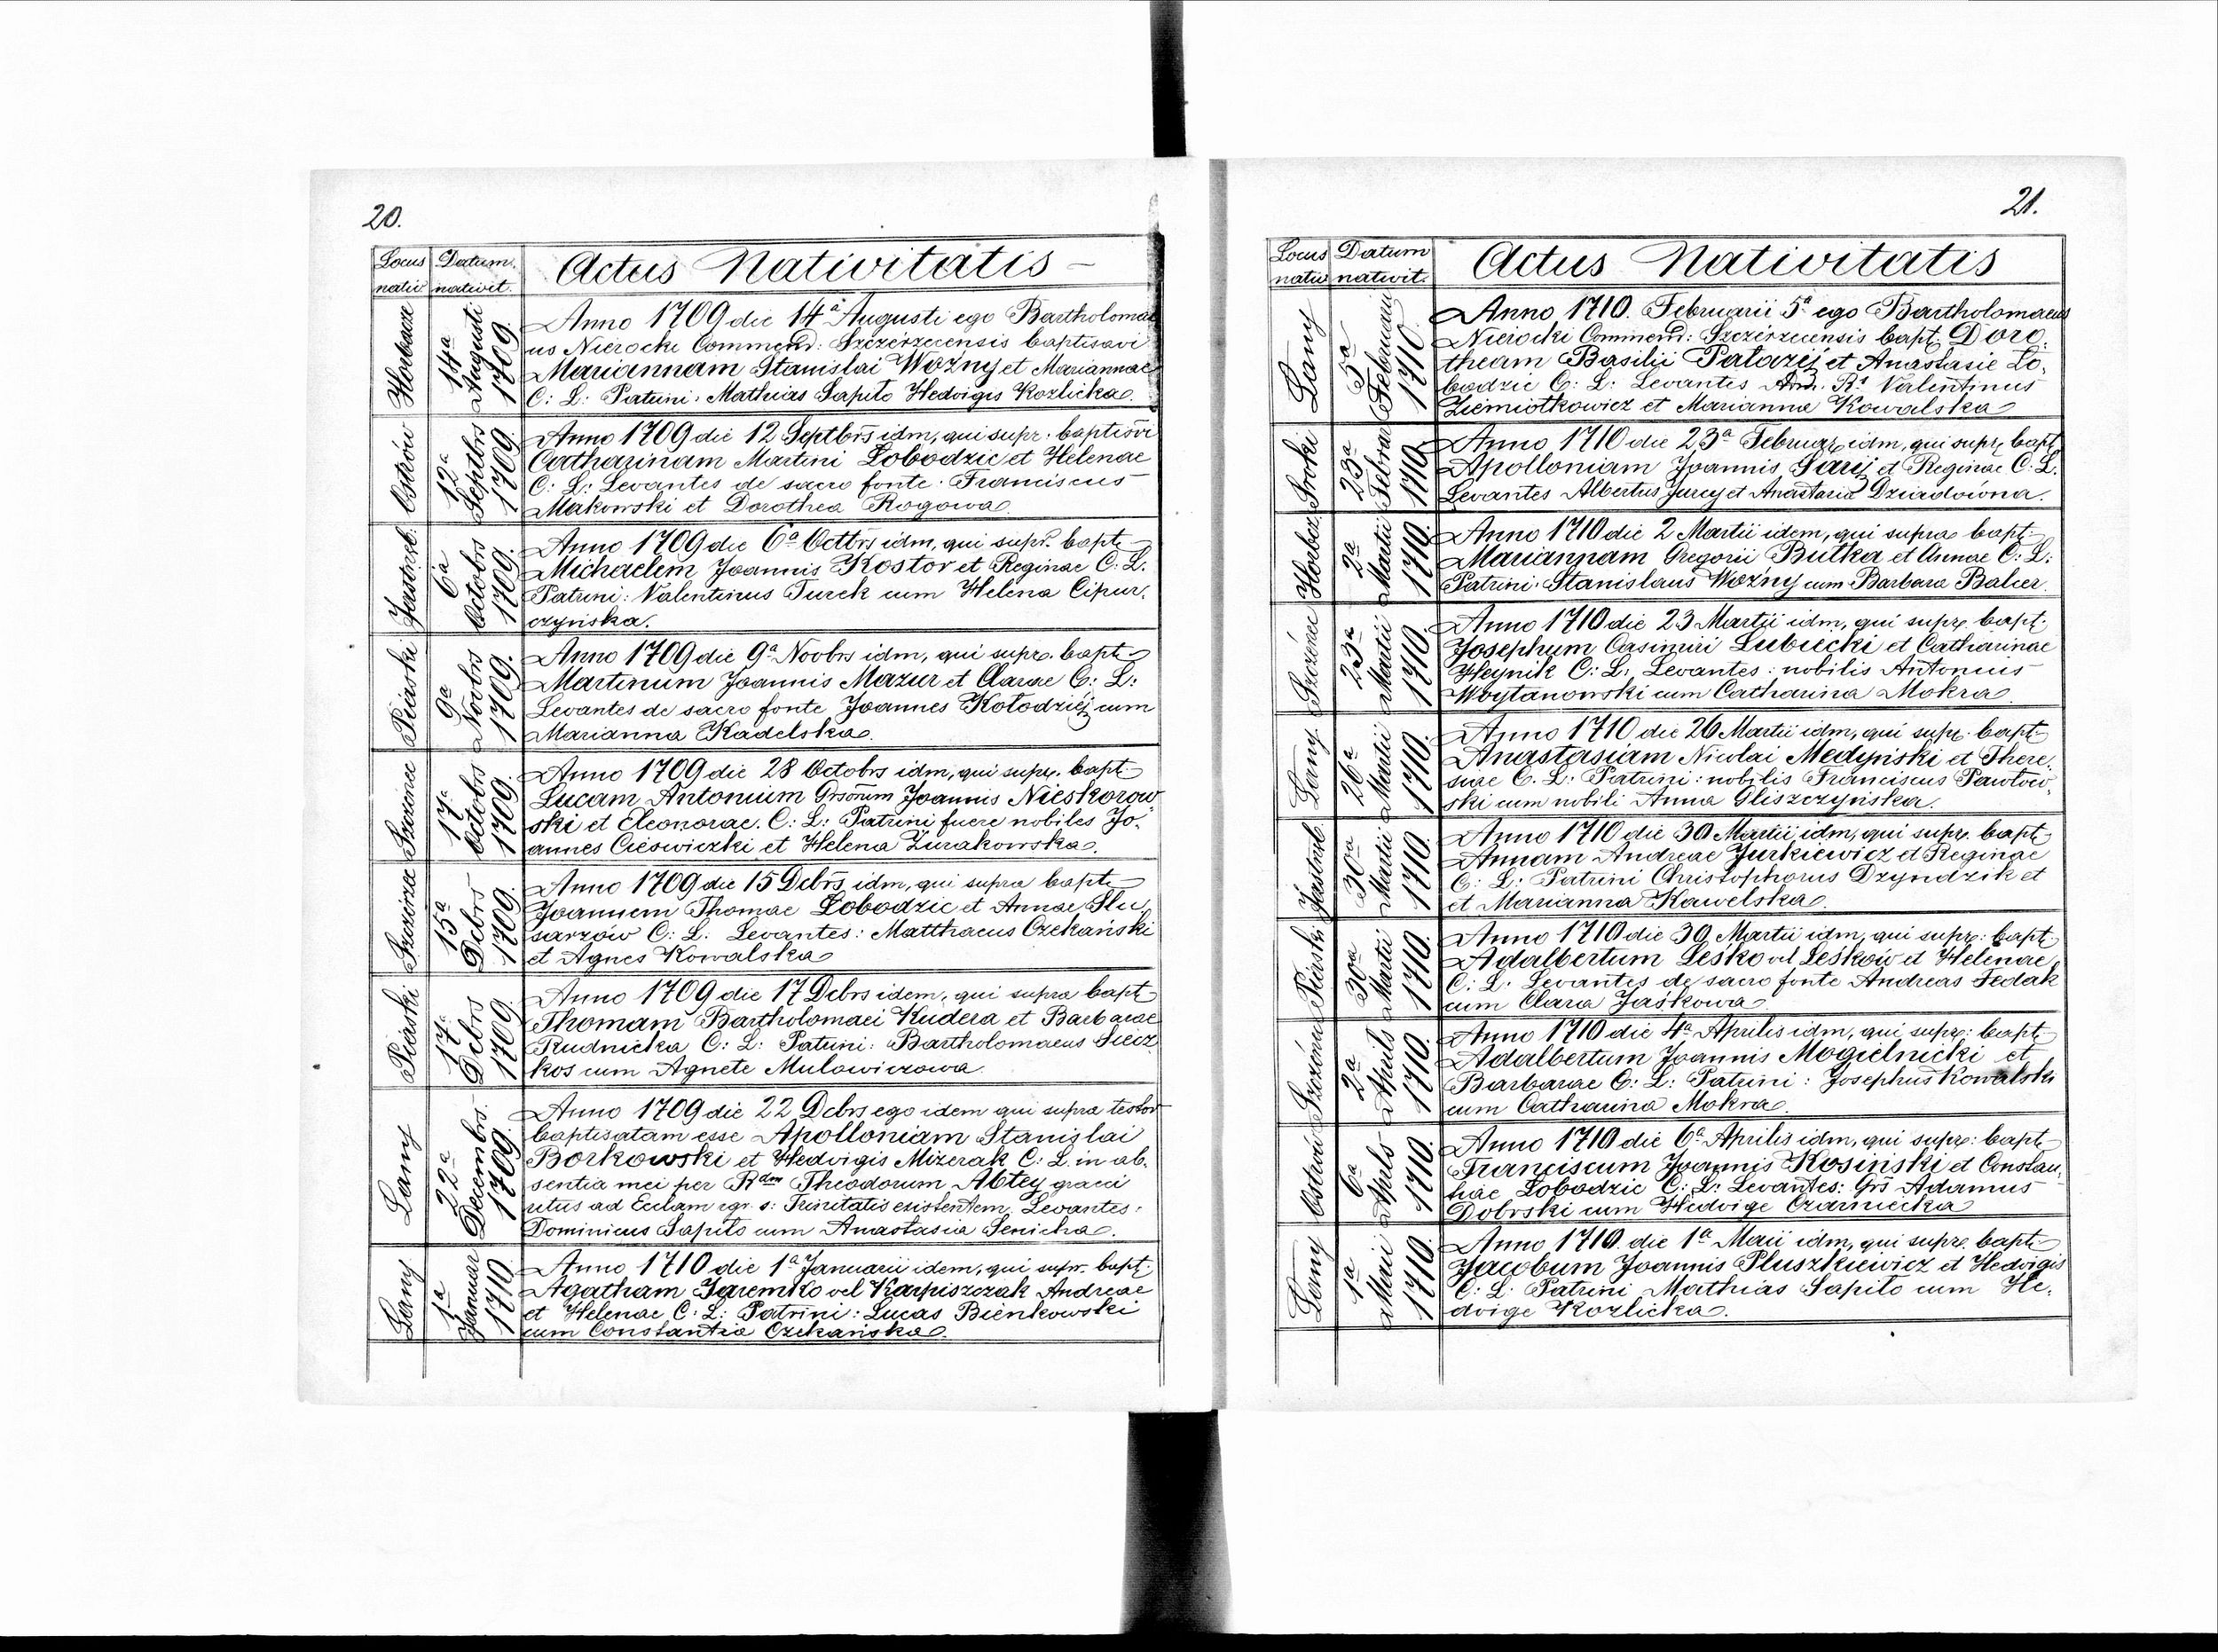 20.
Locus nativ
Datum nativit.
Actus Nativitatis
Horbacze
14a Augusti 1709.
Anno 1709 die 14a Augusti ego Bartholomae
us Nierocki Commend: Szczerzecensis baptisavi
Mariannam Stanislai Woźny et Mariannae
C: L: Patrini: Mathias Sapito Hedvigis Kozlicka.
Ostrów
12a Septbrs 1709.
Anno 1709 die 12 Septbrs idm, qui supr. baptisvi
Catharinam Martini Lobodzic et Helenae
C: L: Levantes de sacro fonte. Franciscus
Makowski et Dorothea Rogowa.
Jastrzeb.
6a Octobrs 1709.
Anno 1709 die 6a Octtrs idm, qui supr. bapt.
Michaelem Joannis Kostor et Reginae C: L.
Patrini: Valentinus Turek cum Helena Cipur,
czyńska.
Piaski
9a Novbrs 1709.
Anno 1709 die 9a Novbrs idm, qui supr. bapt.
Martinum Joannis Mazur et Clarae C: L:
Levantes de sacro fonte Joannes Kołodziéj cum
Marianna Kadelska.
17a Octobrs 1709.
Anno 1709 die 28 Octobrs idm, qui supr. bapt.
Lucam Antonium Grsorum Joannis Nieskorow
ski et Eleonorae. C: L: Patrini fuere nobiles Jo,
annes Cieswiczki et Helena Żurakowska.
15a Dcbrs 1709.
Anno 1709 die 15 Dcbrs idm, qui supra bapt.
Joannem Thomae Lobodzic et Annae Slu
sarzów C: L. Levantes: Matthaeus Czekański
et Agnes Kowalska
Piaski
17a Dcbrs 1709.
Anno 1709 die 17 Dcbrs idem, qui supra bapt.
Thomam Bartholomaei Kudera et Barbarae
Rudnicka C: L: Patrini: Bartholomaeus Siecz
kos cum Agnete Mulowiczowa
Lany
22a Decembrs. 1709.
Anno 1709 die 22 Dcbrs ego idem qui supra testor
baptisatam esse Apolloniam Stanislai
Borkowski et Hedvigis Mizerak C: L. in ab,
sentia mei per Rdm Theodorum Abtey graeci
ritus ad Eclam rgr. s: Trinitatis existentem. Levantes:
Dominicus Sapito cum Anastasia Senicha.
Lany
1a Januar 1710.
Anno 1710 die 1a Januarii idem, qui supr. bapt.
Agatham Jaremko vel Karpiszczak Andreae
et Helenae C: L: Patrini: Lucas Bienkowski
cum Constantia Czekańska.
21.
Locus nativ
Datum nativit.
Actus Nativitatis
Lany
5a Februarii 1710.
Anno 1710. Februarii 5a ego Bartholomaeus
Nierocki Commend: Szczérzecensis bapt. Doro,
theam Basilii Pałazéj et Anastasie Lo,
bodzic C: L: Levantes Valentinus
Ziemiotkowicz et Marianna Kowalska
Sroki
23a Febrar 1710.
Anno 1710 die 23a Februar idm, qui supr. bapt.
Apolloniam Joannis Saréj et Reginae C: L.
Levantes Albertus Jurcy et Anastasia Dziadoiona.
Horbcz
2a Martii 1710.
Anno 1710 die 2 Martii idem, qui supra bapt.
Mariannam Gregorii Butka et Annae C: L:
Patrini: Stanislaus Woźny cum Barbara Balcer.
23a Martii 1710.
Anno 1710 die 23 Martii idm, qui supr. bapt.
Josephum Casimiri Lubiecki et Catharinae
Heynik C: L: Levantes: nobilis Antonius
Woytanowski cum Catharina Mokra.
Lany
26a Martii 1710.
Anno 1710 die 26 Martii idm, qui supr. bapt.
Anastasiam Nicolai Medyński et There,
siae C. L: Patrini: nobilis Franciscus Pawłow,
ski cum nobili Anna Gliszczyńska.
Jastrzeb.
30a Martii 1710.
Anno 1710 die 30 Martii idm, qui supr. bapt.
Annam Andreae Jurkiewicz et Reginae
C: L: Patrini Christophorus Dzyndzik et
et Marianna Kawelska.
Piaski
30a Martii 1710.
Anno 1710 die 30 Martii idm, qui supr: bapt.
Adalbertum Leśko vel Leśkow et Helenae
C: L: Levantes de sacro fonte Andreas Fedak
cum Clara Jaśkowa
2a Aprils 1710.
Anno 1710 die 4a Aprilis idm, qui supr: bapt.
Adalbertum Joannis Mogielnicki et
Barbarae C: L: Patrini: Josephus Kowalski
cum Catharina Mokra.
Ostrów
6a Aprls 1710.
Anno 1710 die 6a Aprilis idm, qui supr: bapt.
Franciscum Joannis Kosiński et Constan,
tiae Lobodzic C: L: Levantes: Grs Adamus
Dobrski cum Hedvige Czarniecka
Lany
1a Maii 1710.
Anno 1710. die 1a Maii idm, qui supr. bapt.
Jacobum Joannis Pluszkiewicz et Hedvigis
C: L: Patrini Mathias Sapito cum He,
dvige Kozlicka.